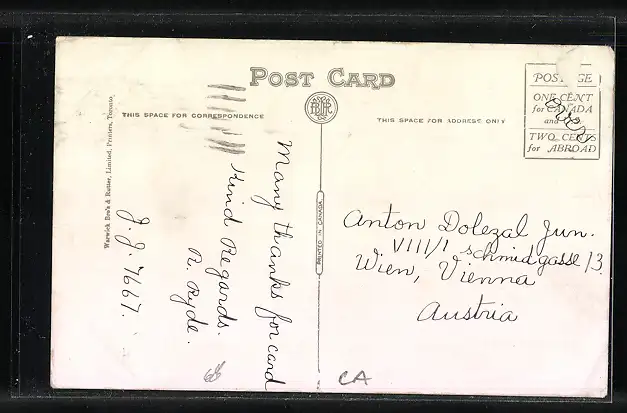 POST CARD
THIS SPACE FOR CORRESPONDENCE
THIS SPACE FOR ADDRESS ONLY
ONE CENT
for CANADA
and
TWO CENTS
for ABROAD
Warwick Bro's & Rutter, Limited, Printers, Toronto
PRINTED IN CANADA
Many thanks for card
Kind Regards.
R. Ryde.
J.J. 7667.
Anton Dolezal Jun.
VIII/1 Schmidgasse 13
Wien, Vienna
Austria
CA